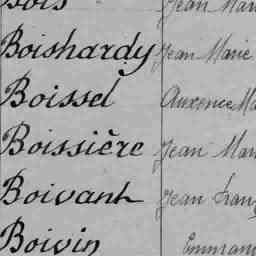 Bois Jean Mari
Boishardy Jean Marie
Boissel Auxence Ma
Boissière Jean Mari
Boivant Jean Fran
Boivin Emman